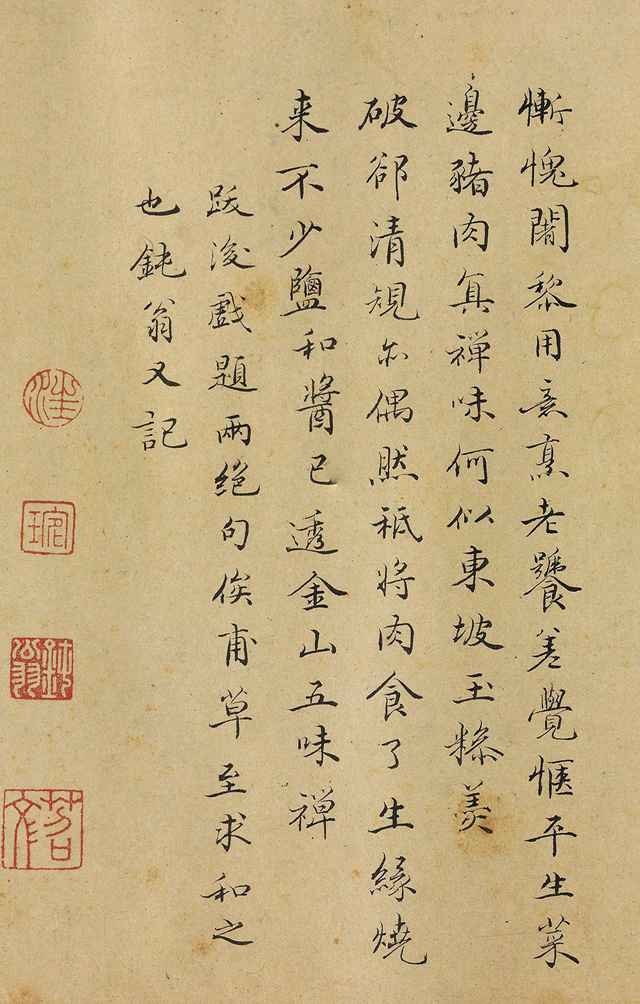 慚愧闍黎用意烹老饕差覺愜平生菜
邊豬肉真禪味何似東坡玉糝羹
破卻清規亦偶然秪將肉食了生緣燒
来不少鹽和醬已透金山五味禅
跋後戲題兩絕句俟甫草至求和之
也鈍翁又記
汪
琬
鈍翁
苕文